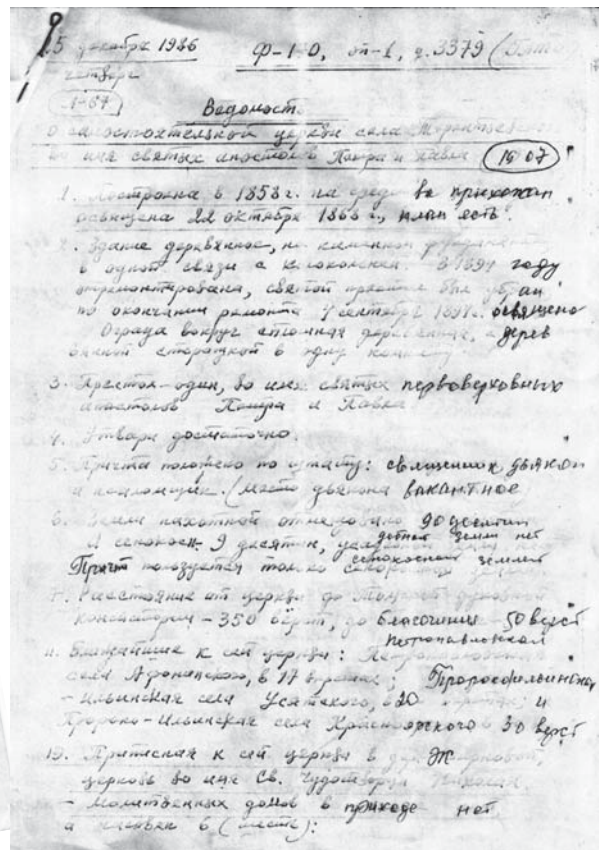 5 декабря 1986 Ф-1 0, оп-1, д. 3379
четверг
Л-67
Ведомость
о самостоятельной церкви села
во имя святых апостолов Петра и Павла 1907
1. Построена в 1858 г. на средства прихожан
освящена 22 октября 1868 г., план есть.
2. Здание деревянное, на каменном фундаменте
в одной связи с колокольней. В 1897 году
отремонтирована, святой престол был убран
по окончании ремонта 4 сентября 1897 г. освящено
Ограда вокруг деревянная, с дерев
янной сторожкой в одну комнату.
3. Престол - один, во имя святых первоверховных
апостолов Петра и Павла
4. Утвари достаточно
5. Причта положено по штату: священник, дьякон
и псаломщик. (место дьякона вакантное
6. Земли пахотной отмежевано 90 десятин
А сенокосн. 9 десятин, усадебной земли нет
Причт пользуется только сенокосной землей
7. Расстояние от церкви до Томской духовной
консистории - 350 вёрст, до благочиния - 50 верст
Петропавловская
11. Ближайшие к сей церкви:
села Афонинского, в 17 верстах; Пророкоильинская
- Ильинская села Усятского, в 20 верстах; и
Пророко-Ильинская села Красноярского в 30 верст
19. Приписная к сей церкви в дер.
церковь во имя Св. Чудотворца Николая
- молитвенных домов в приходе нет
а часовен 6 (месте):